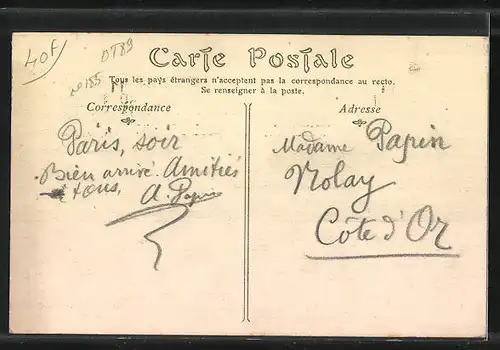 40f
DT89
n° 185
Carte Postale
Tous les pays étrangers n'acceptent pas la correspondance au recto.
Se renseigner à la poste.
Correspondance
Paris, soir
Bien arrivé. Amitiés
à tous,
A. Papin
Adresse
Madame Papin
Nolay
Côte d'Or